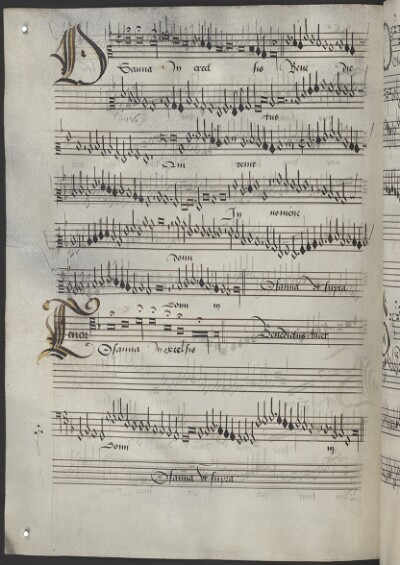 Osanna In excel sis Bene dic
tus
Qui venit
In nomine
domi
Osanna ut supra
Domi ni
Tenor Benedictus tacet
Osanna In excelsis
Domi ni
Osanna ut supra